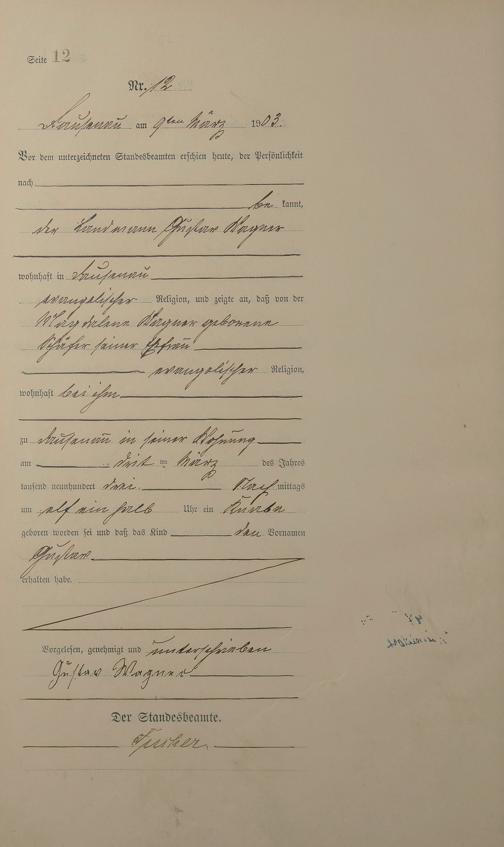 Seite 12
Nr. 12
Dausenau am 9ten März 1903.
Vor dem unterzeichneten Standesbeamten erschien heute, der Persönlichkeit
nach
be kannt,
der Landmann Gustav Wagner
wohnhaft in Dausenau
evangelischer Religion, und zeigte an, daß von der
Magdalene Wagner geborene
Schäfer seiner Ehefrau
evangelischer Religion,
wohnhaft bei ihm
zu Dausenau in seiner Wohnung
am März des Jahres
tausend neunhundert drei Nach mittags
um elf ein halb Uhr ein Knabe
geboren worden sei und daß das Kind den Vornamen
Gustav
erhalten habe.
Vorgelesen, genehmigt und unterschrieben
Gustav Wagner
Der Standesbeamte.